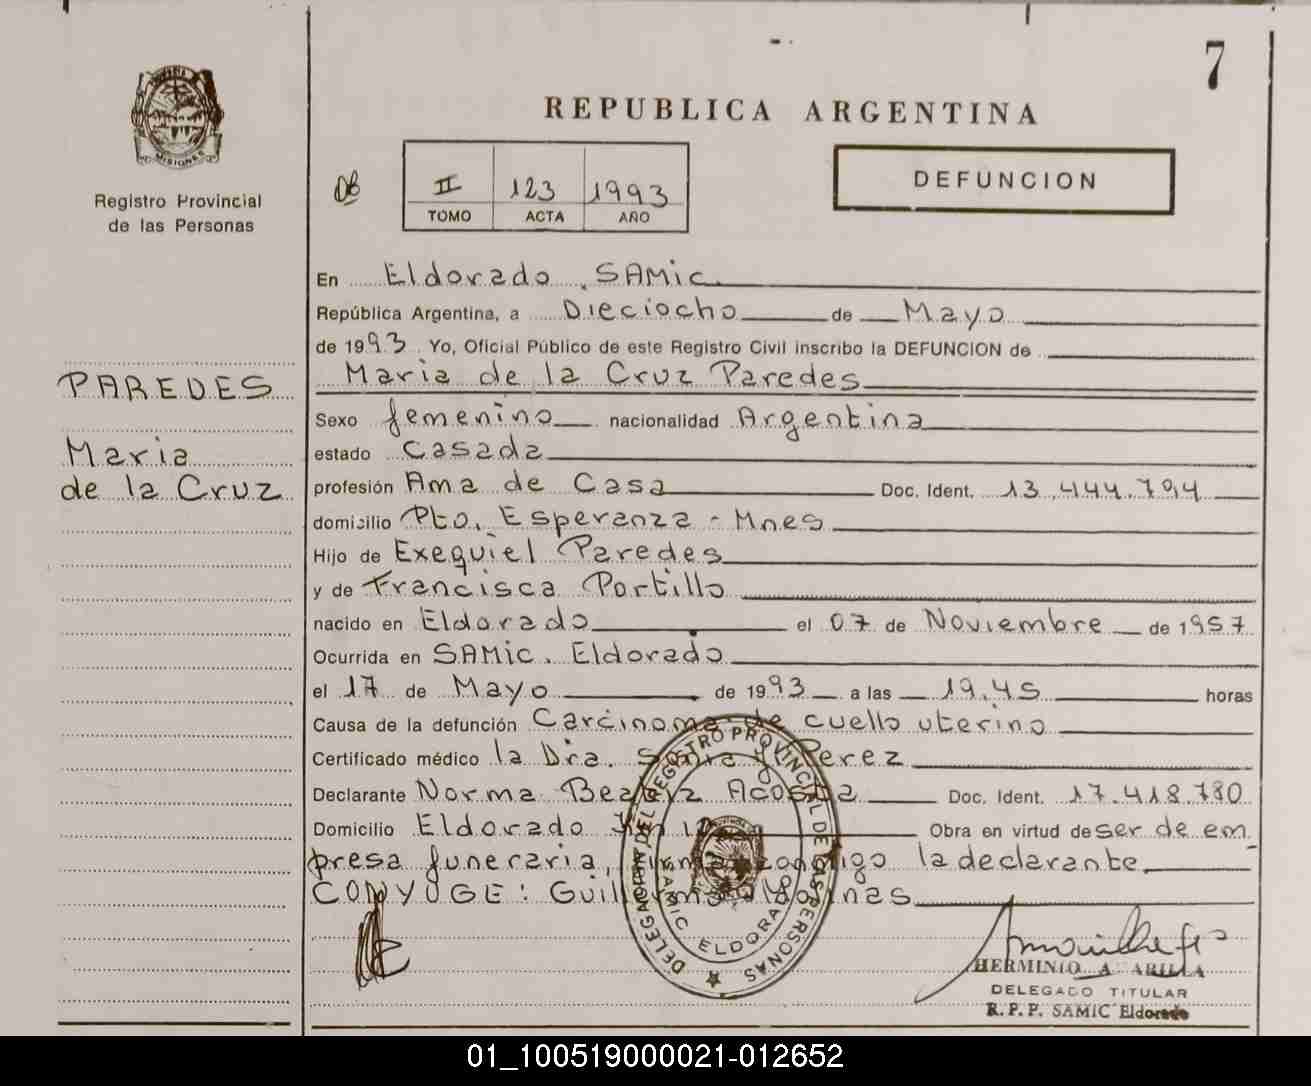 7
REPUBLICA ARGENTINA
MISIONES
Registro Provincial
de las Personas
II 123 1993
TOMO ACTA AÑO
DEFUNCION
PAREDES
Maria
de la Cruz
En Eldorado, SAMic.
República Argentina, a Dieciocho de Mayo
de 1993 Yo, Oficial Público de este Registro Civil inscribo la DEFUNCION de
Maria de la Cruz Paredes
Sexo femenino nacionalidad Argentina
estado Casada
profesión Ama de Casa Doc. Ident. 13.444.794
domicilio Pto. Esperanza - Mnes
Hijo de Exequiel Paredes
y de Francisca Portillo
nacido en Eldorado el 07 de Noviembre de 1957
Ocurrida en SAMic. Eldorado
el 17 de Mayo de 1993 a las 19.45 horas
Causa de la defunción Carcinoma de cuello uterino
Certificado médico la Dra. Perez
Declarante Norma Beatriz Acosta Doc. Ident. 17.418.780
Domicilio Eldorado Km 12 Obra en virtud de ser de em
presa funeraria, firma conmigo la declarante.
CONYUGE: Guillermo
DELEGACION DEL REGISTRO PROVINCIAL DE LAS PERSONAS
SAMIC ELDORADO
HERMINIO A. ARILLA
DELEGADO TITULAR
R. P. P. SAMIC Eldorado
01_100519000021-012652